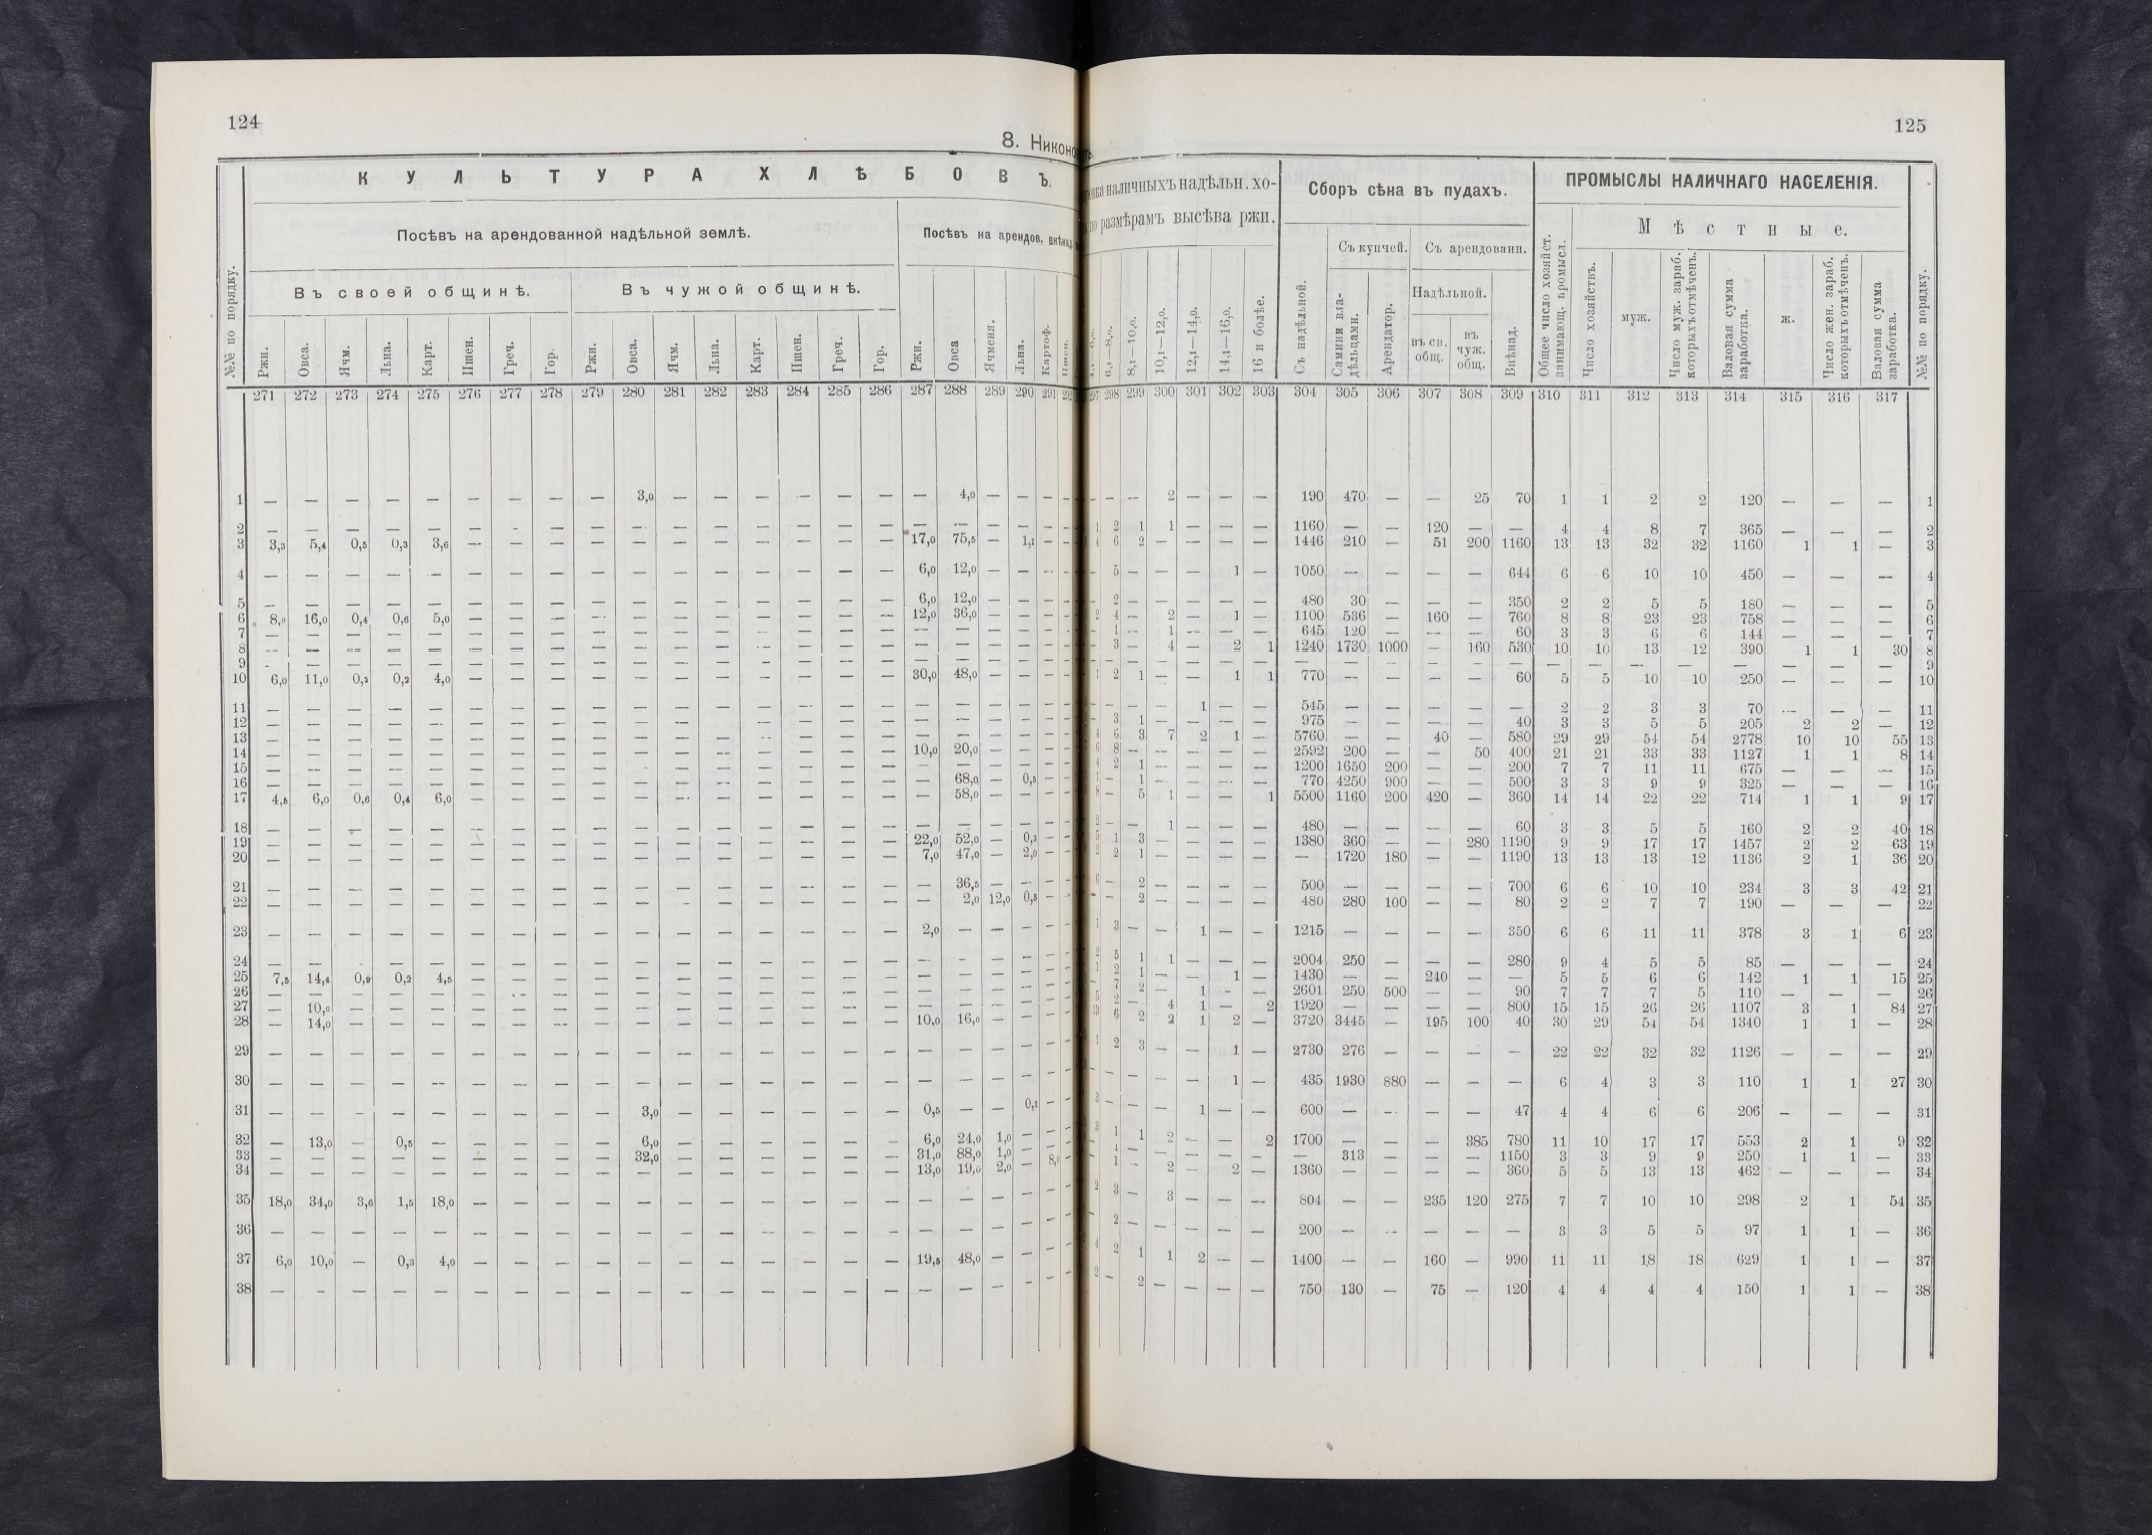 124
8. Никоно
КУЛЬТУРА ХЛѢБОВЪ.
Посѣвъ на арендованной надѣльной землѣ.
Посѣвъ на арендов. внѣнад.
Въ своей общинѣ.
Въ чужой общинѣ.
№№ по порядку. Ржи. Овса. Ячм. Льна. Карт. Пшен. Греч. Гор. Ржи. Овса. Ячм. Льна. Карт. Пшен. Греч. Гор. Ржи. Овса Ячменя. Льна. Картоф.
271 272 273 274 275 276 277 278 279 280 281 282 283 284 285 286 287 288 289 290 291
1 — — — — — — — — — 3,0 — — — — — — — 4,0 — — —
2 — — — — — — — — — — — — — — — — — — — — —
3 3,3 5,4 0,5 0,3 3,6 — — — — — — — — — — — 17,0 75,5 — 1,1 —
4 — — — — — — — — — — — — — — — — 6,0 12,0 — — —
5 — — — — — — — — — — — — — — — — 6,0 12,0 — — —
6 8,0 16,0 0,4 0,6 5,0 — — — — — — — — — — — 12,0 36,0 — — —
7 — — — — — — — — — — — — — — — — — — — — —
8 — — — — — — — — — — — — — — — — — — — — —
9 — — — — — — — — — — — — — — — — — — — — —
10 6,0 11,0 0,2 0,2 4,0 — — — — — — — — — — — 30,0 48,0 — — —
11 — — — — — — — — — — — — — — — — — — — — —
12 — — — — — — — — — — — — — — — — — — — — —
13 — — — — — — — — — — — — — — — — — — — — —
14 — — — — — — — — — — — — — — — — 10,0 20,0 — — —
15 — — — — — — — — — — — — — — — — — — — — —
16 — — — — — — — — — — — — — — — — — 68,0 — 0,5 —
17 4,5 6,0 0,6 0,4 6,0 — — — — — — — — — — — — 58,0 — — —
18 — — — — — — — — — — — — — — — — — — — — —
19 — — — — — — — — — — — — — — — — 22,0 52,0 — 0,3 —
20 — — — — — — — — — — — — — — — — 7,0 47,0 — 2,0 —
21 — — — — — — — — — — — — — — — — — 36,5 — — —
22 — — — — — — — — — — — — — — — — — 2,0 12,0 0,5 —
23 — — — — — — — — — — — — — — — — 2,0 — — — —
24 — — — — — — — — — — — — — — — — — — — — —
25 7,5 14,4 0,9 0,2 4,5 — — — — — — — — — — — — — — — —
26 — — — — — — — — — — — — — — — — — — — — —
27 — 10,0 — — — — — — — — — — — — — — — — — — —
28 — 14,0 — — — — — — — — — — — — — — 10,0 16,0 — — —
29 — — — — — — — — — — — — — — — — — — — — —
30 — — — — — — — — — — — — — — — — — — — — —
31 — — — — — — — — — 3,0 — — — — — — 0,5 — — 0,1 —
32 — 13,0 — 0,5 — — — — — 6,0 — — — — — — 6,0 24,0 1,0 — —
33 — — — — — — — — — 32,0 — — — — — — 31,0 88,0 1,0 — 8,0
34 — — — — — — — — — — — — — — — — 13,0 19,0 2,0 — —
35 18,0 34,0 3,6 1,5 18,0 — — — — — — — — — — — — — — — —
36 — — — — — — — — — — — — — — — — — — — — —
37 6,0 10,0 — 0,3 4,0 — — — — — — — — — — — 19,5 48,0 — — —
38 — — — — — — — — — — — — — — — — — — — — —
125
наличныхъ надѣльн. хо-
по размѣрамъ высѣва ржи.
Сборъ сѣна въ пудахъ.
ПРОМЫСЛЫ НАЛИЧНАГО НАСЕЛЕНІЯ.
Мѣстные.
Съ купчей. Съ арендованн.
Надѣльной.
6,1—8,0. 8,1—10,0. 10,1—12,0. 12,1—14,0. 14,1—16,0. 16 и болѣе. Съ надѣльной. Самими вла-дѣльцами. Арендатор. въ св. общ. въ чуж. общ. Внѣнад. Общее число хозяйст. занимающ. промысл. Число хозяйствъ. муж. Число муж. зараб. которыхъ отмѣченъ. Валовая сумма заработка. ж. Число жен. зараб. которыхъ отмѣченъ. Валовая сумма заработка. №№ по порядку.
298 299 300 301 302 303 304 305 306 307 308 309 310 311 312 313 314 315 316 317
— — 2 — — — 190 470 — — 25 70 1 1 2 2 120 — — — 1
2 1 1 — — — 1160 — — 120 — — 4 4 8 7 365 — — — 2
6 2 — — — — 1446 210 — 51 200 1160 13 13 32 32 1160 1 1 — 3
5 — — — 1 — 1050 — — — — 644 6 6 10 10 450 — — — 4
2 — — — — — 480 30 — — — 350 2 2 5 5 180 — — — 5
4 — 2 — 1 — 1100 536 — 160 — 760 8 8 23 23 758 — — — 6
1 — 1 — — — 645 120 — — — 60 3 3 6 6 144 — — — 7
3 — 4 — 2 1 1240 1730 1000 — 160 530 10 10 13 12 390 1 1 30 8
— — — — — — — — — — — — — — — — — — — — 9
2 1 — — 1 1 770 — — — — 60 5 5 10 10 250 — — — 10
— — — 1 — — 545 — — — — — 2 2 3 3 70 — — — 11
3 1 — — — — 975 — — — — 40 3 3 5 5 205 2 2 — 12
6 3 7 2 1 — 5760 — — 40 — 580 29 29 54 54 2778 10 10 55 13
8 — — — — — 2592 200 — — 50 400 21 21 33 33 1127 1 1 8 14
2 1 — — — — 1200 1650 200 — — 200 7 7 11 11 675 — — — 15
— 1 — — — — 770 4250 900 — — 500 3 3 9 9 325 — — — 16
— 5 1 — — 1 5500 1160 200 420 — 360 14 14 22 22 714 1 1 9 17
— — 1 — — — 480 — — — — 60 3 3 5 5 160 2 2 40 18
1 3 — — — — 1380 360 — — 280 1190 9 9 17 17 1457 2 2 63 19
2 1 — — — — — 1720 180 — — 1190 13 13 13 12 1136 2 1 36 20
— 2 — — — — 500 — — — — 700 6 6 10 10 234 3 3 42 21
— 2 — — — — 480 280 100 — — 80 2 2 7 7 190 — — — 22
3 — — 1 — — 1215 — — — — 350 6 6 11 11 378 3 1 6 23
5 1 1 — — — 2004 250 — — — 280 9 4 5 5 85 — — — 24
2 1 — — 1 — 1430 — — 240 — — 5 5 6 6 142 1 1 15 25
7 2 — 1 — — 2601 250 500 — — 90 7 7 7 5 110 — — — 26
2 — 4 1 — 2 1920 — — — — 800 15 15 26 26 1107 3 1 84 27
6 2 2 1 2 — 3720 3445 — 195 100 40 30 29 54 54 1340 1 1 — 28
2 3 — — 1 — 2730 276 — — — — 22 22 32 32 1126 — — — 29
— — — — 1 — 435 1930 880 — — — 6 4 3 3 110 1 1 27 30
— — — 1 — — 600 — — — — 47 4 4 6 6 206 — — — 31
1 1 2 — — 2 1700 — — — 385 780 11 10 17 17 553 2 1 9 32
1 — — — — — — 313 — — — 1150 3 3 9 9 250 1 1 — 33
1 — 2 — 2 — 1360 — — — — 360 5 5 13 13 462 — — — 34
3 — 3 — — — 804 — — 235 120 275 7 7 10 10 298 2 1 54 35
2 — — — — — 200 — — — — — 3 3 5 5 97 1 1 — 36
2 1 1 2 — — 1400 — — 160 — 990 11 11 18 18 629 1 1 — 37
— 2 — — — — 750 130 — 75 — 120 4 4 4 4 150 1 1 — 38